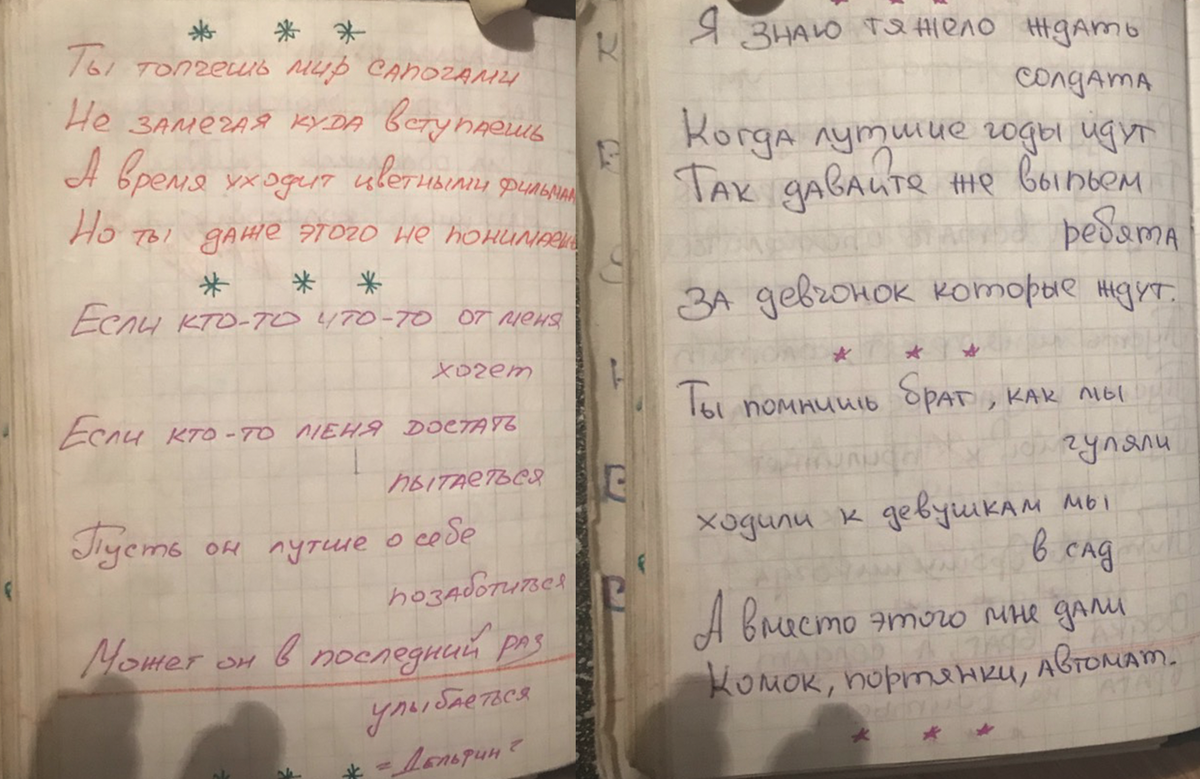 * * *
Ты топчешь мир сапогами
Не замечая куда вступаешь
А время уходит цветными фильмам
Но ты даже этого не понимаешь
* * *
Если кто-то что-то от меня
хочет
Если кто-то меня достать
пытаеться
Пусть он лутше о себе
позаботиться
Может он в последний раз
улыбаеться
* * * = Дельфин =
* * *
Я знаю тяжело ждать
солдата
Когда лутшие годы идут
Так давайте же выпьем
ребята
За девчонок которые ждут.
* * *
Ты помнишь брат, как мы
гуляли
ходили к девушкам мы
в сад
А вместо этого мне дали
Комок, портянки, автомат.
* * *